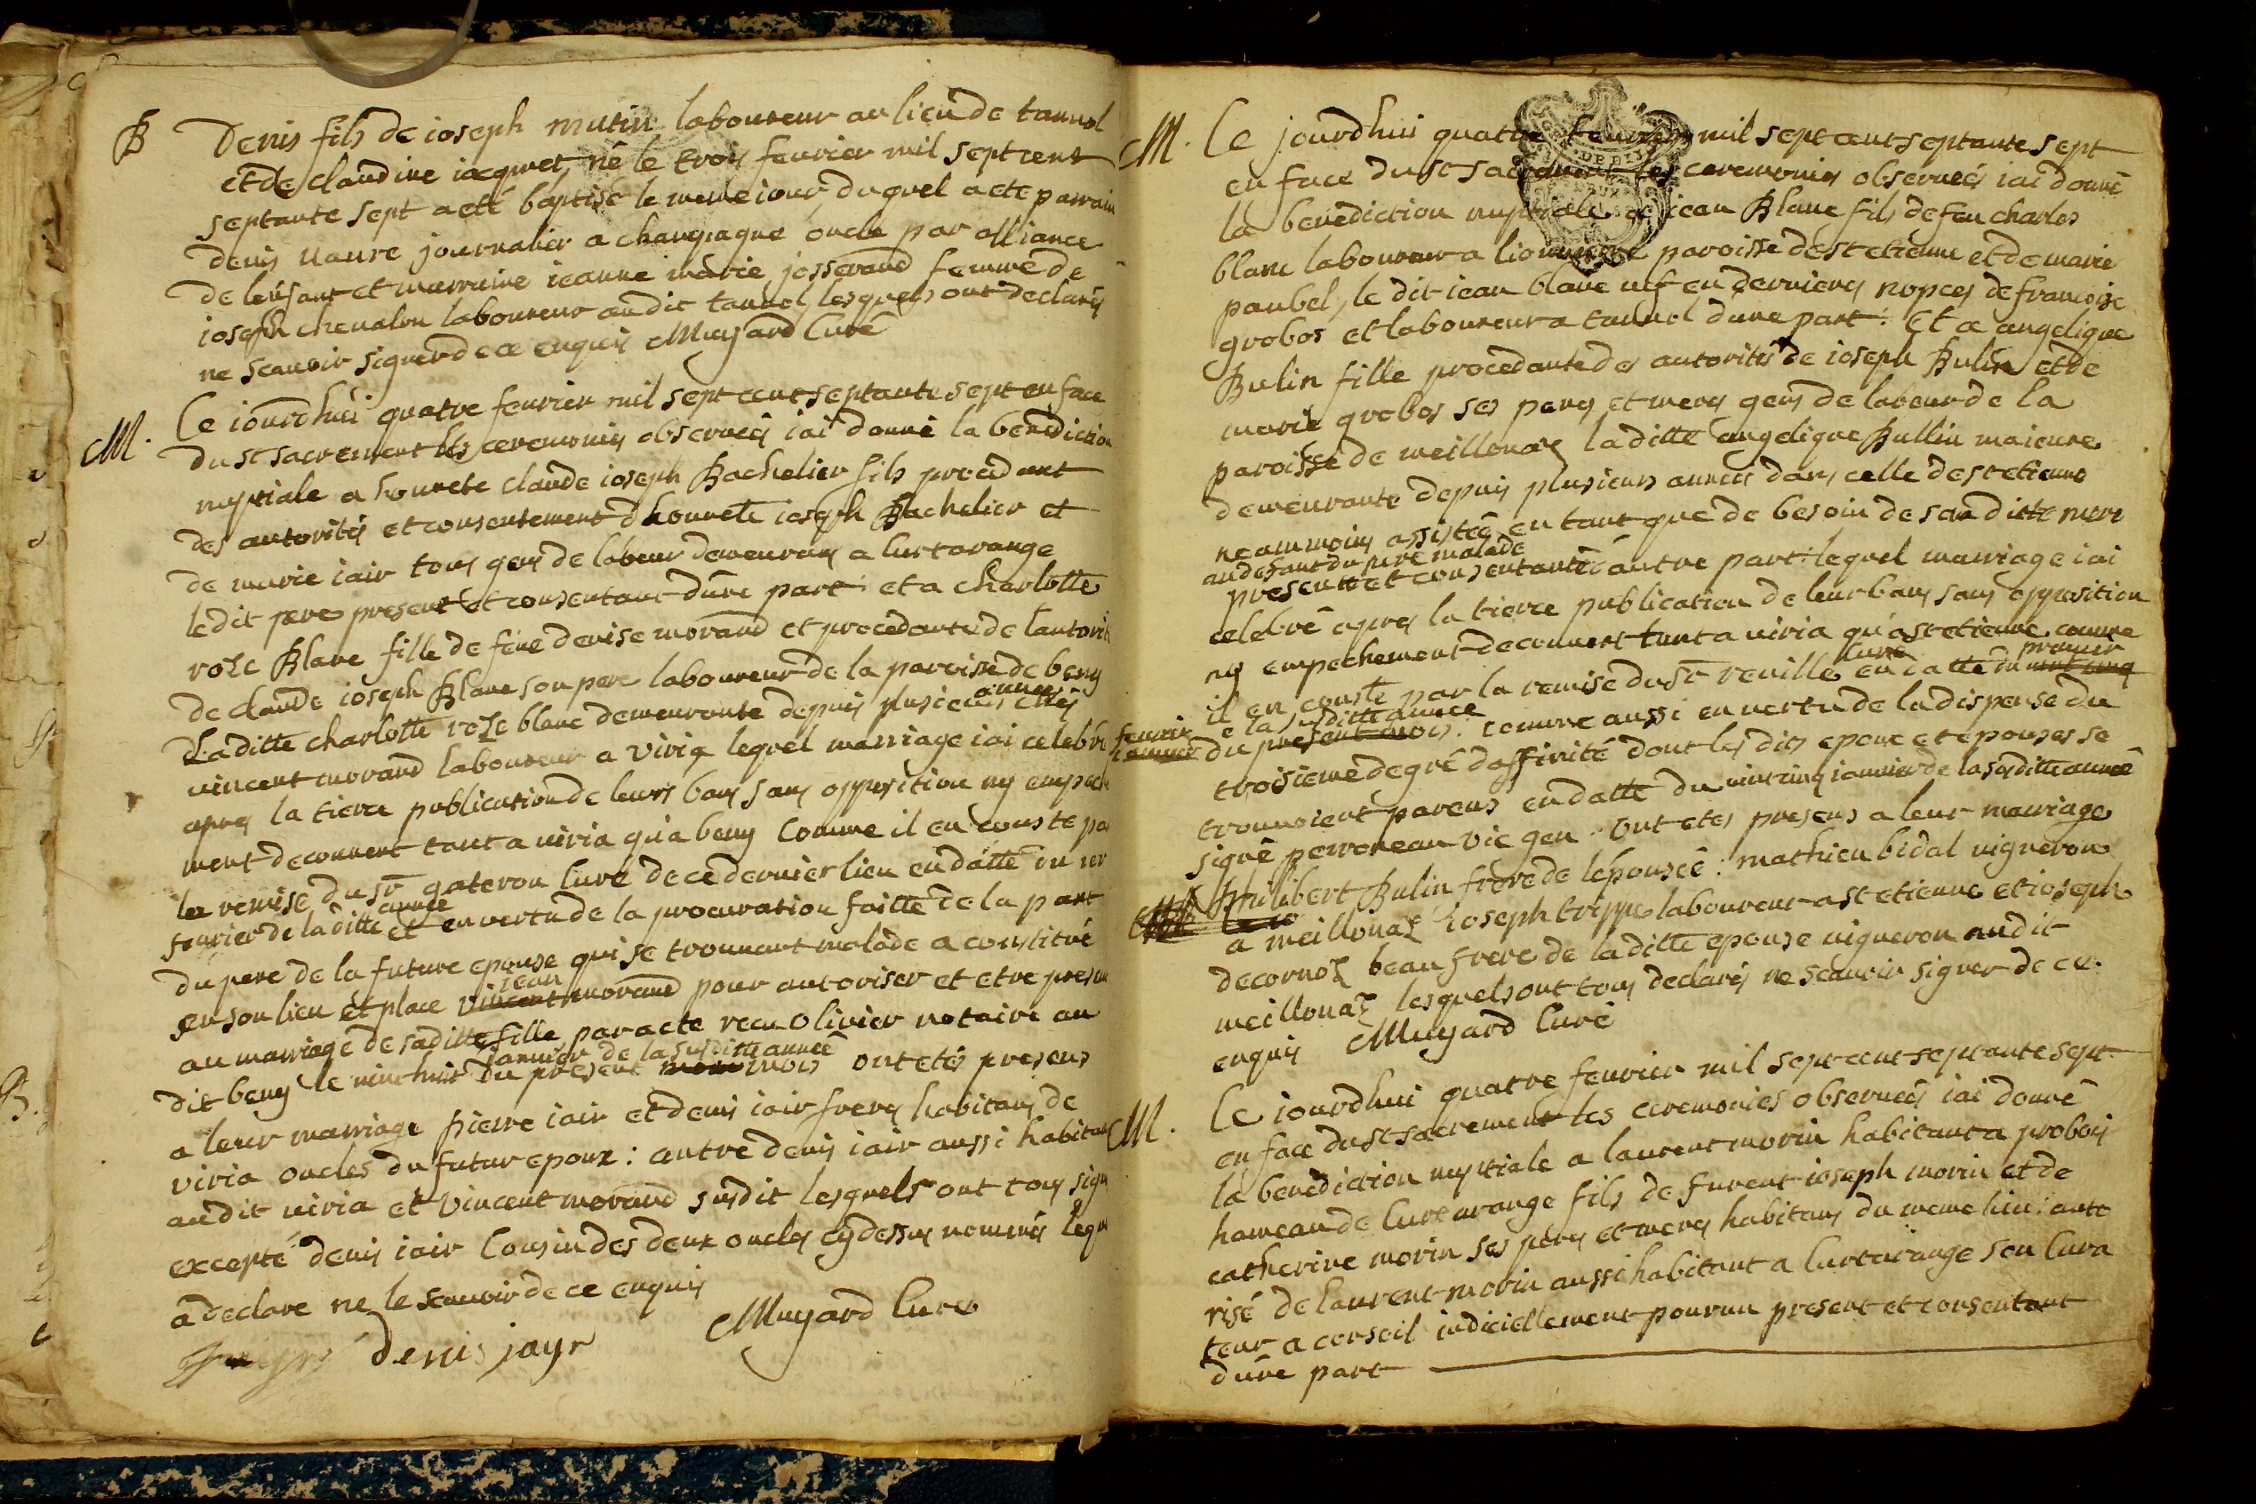 B Denis fils de ioseph mutin laboureur au lieu de tannol
et de claudine iacquet, né le trois feurier mil sept cent
septante sept a eté baptisé le meme iour duquel a ete parrain
denis uaure journalier a changiagne oncle par alliance
de lenfant et marraine ieanne marie josserand femme de
ioseph cheualon laboureur audit tannol, lesquels ont declarés
ne scauoir signer de ce enquis Muyard Curé
M. Ce iourdhui quatre feurier mil sept cent septante sept en face
du st sacrement les ceremonies obseruées iai donné la benediction
nuptiale a honnete claude ioseph Bachelier fils procedant
des autorités et consentement dhonnete ioseph Bachelier et
de marie iair tous gens de labeur demeurans a lurtarange
le dit pere present et consentant dune part: et a charlotte
roze Blanc fille de feue denise morand et procedante de lautorité
de claude ioseph Blanc son pere laboureur de la paroisse de beny
Laditte charlotte roze blanc demeurante depuis plusieurs années chés
vincent morand laboureur a viria lequel marriage iai celebré
apres la tierce publication de leurs bans sans opposition ny empeche
ment decouuert tant a viria qu'a beny Comme il en conste par
la remise du sr gateron Curé de ce dernier lieu en datte du
feurier de laditte année et en vertu de la procuration faitte de la part
du pere de la future epouse qui se trouuant malade a constitué
en son lieu et place vincent jean morand pour autoriser et etre present
au marriage de saditte fille par acte recu Olivier notaire au
dit beny le vint huit du present mois janvier de la susditte année ont etés presens
a leur marriage pierre iair et denis iair freres habitans de
viria oncles du futur epoux: autre denis iair aussi habitant
audit uiria et vincent morand susdit lesquels ont tous signé
excepté denis iair Cousin des deux oncles cy dessus nommés lequel
a declare ne le scauoir de ce enquis
denis jayr Muyard Cure
M. Ce jourdhui quatre feurier mil sept cent septante sept
en face du st sacrement les ceremonies obseruées iai donné
la benediction nuptiale a iean Blanc fils de feu charles
blanc laboureur a paroisse de st etienne et de marie
paubel, le dit iean blanc uef en dernieres nopces de francoise
grobos et laboureur a tannol dune part: et a angelique
Bulin fille procedante des autorités de ioseph Bulin et de
marie grobos ses peres et meres gens de labeur de la
paroisse de meillonaz laditte angelique Bullin maieure
demeurante depuis plusieurs années dans celle de st etienne
neammoins assistée en tant que de besoin de sa ditte mere
au defaut du pere malade
presente et consentante dautre part: lequel marriage iai
celebré apres la tierce publication de leur bans sans opposition
ny empechement decouuert tant a viria qu'a st etienne comme
il en conste par la remise du sr reuille curé en datte du vint cinq premier
feurier janvier du present mois de la susditte année: comme aussi en vertu de la dispense du
troisieme degré daffinité dont les dits epoux et epouses se
trouuoient parens en datte du vint cinq ianvier de la susditte année
signé perroneau vic gen. Ont etes presens a leur marriage
philibert Bulin frere de lepousée: mathieu bidal uigneron
a meillonaz ioseph trippe laboureur a st etienne et ioseph
decornoz beau frere de laditte epouse uigneron audit
meillonaz lesquels ont tous declarés ne scauoir signer de ce
enquis Muyard Curé
M. Ce iourdhui quatre feurier mil sept cent septante sept
en face du st sacrement les ceremonies obseruées iai donné
la benediction nuptiale a laurent morin habitant a probois
hameau de Curtarange fils de furent ioseph morin et de
catherine morin ses peres et meres habitans du meme lieu: auto
risé de laurent morin aussi habitant a Curtarange son Cura
teur a conseil iudiciellement pourvu present et consentant
dune part